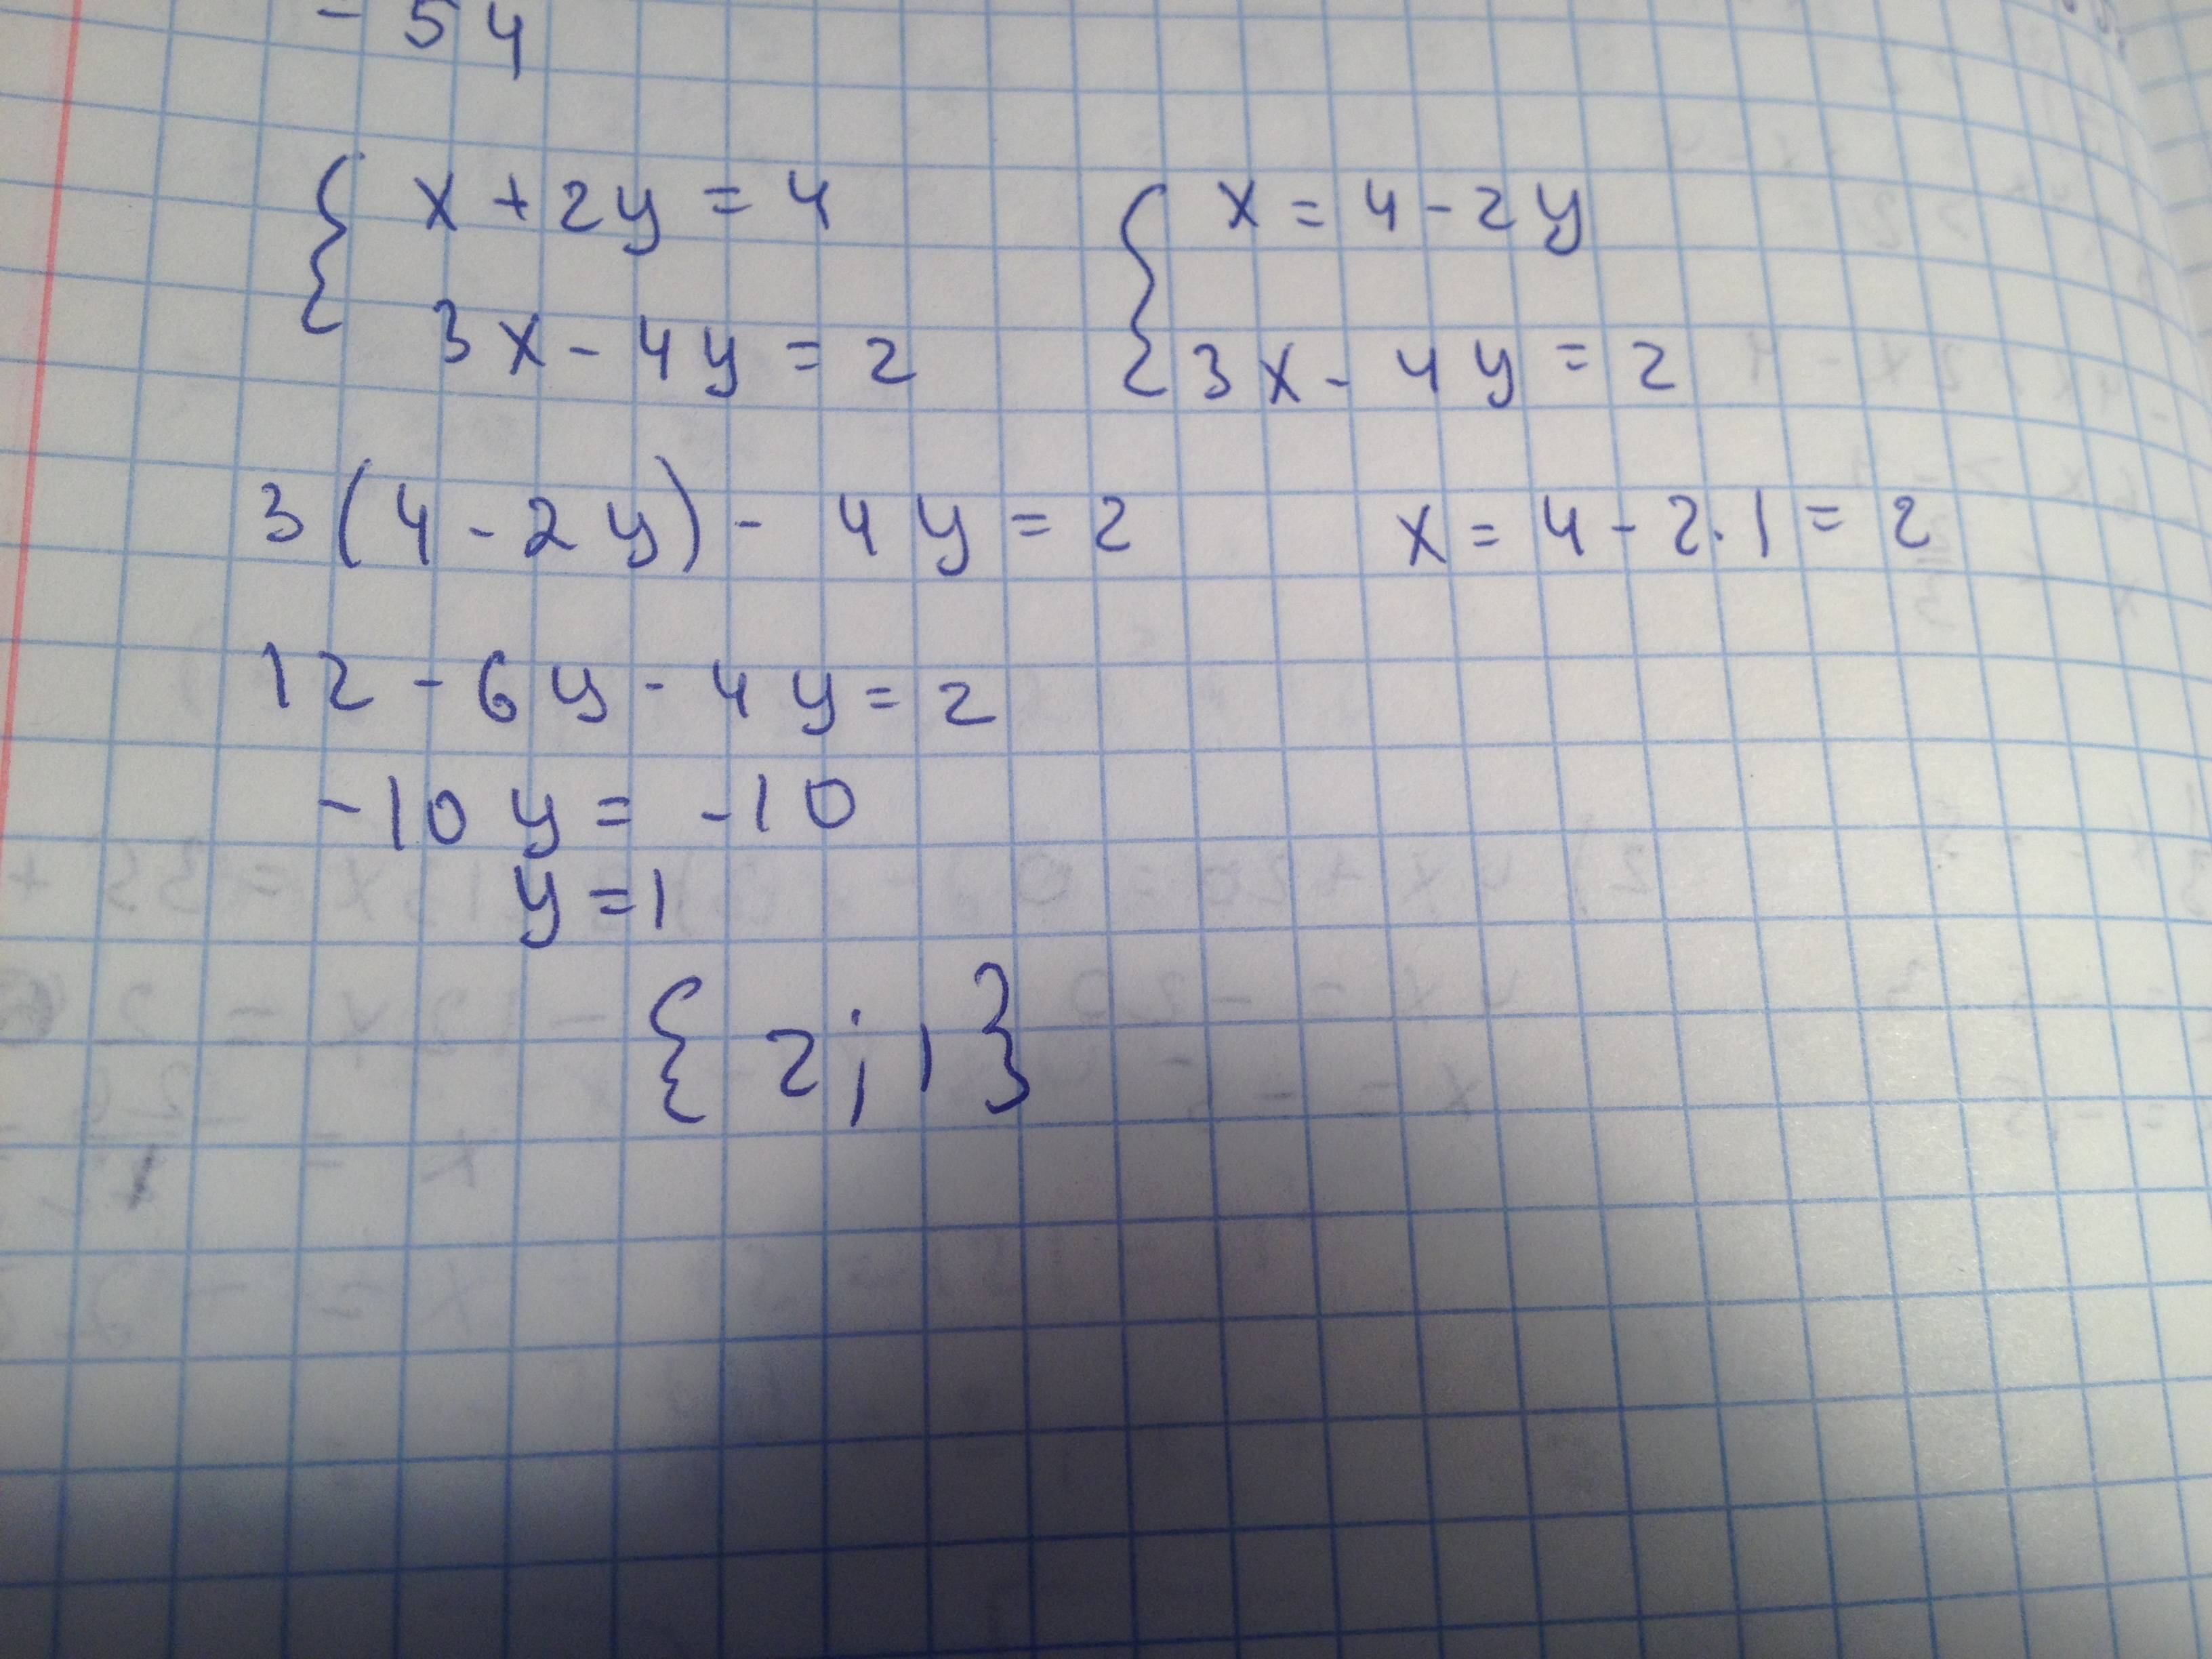 - 54
{ x + 2y = 4
3x - 4y = 2
{ x = 4 - 2y
3x - 4y = 2
3(4 - 2y) - 4y = 2
x = 4 - 2 · 1 = 2
12 - 6y - 4y = 2
-10y = -10
y = 1
{2; 1}